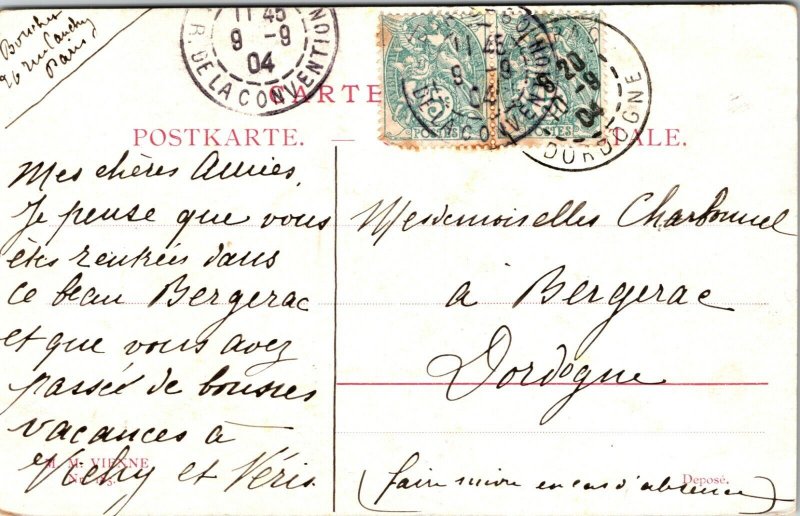 Boucher
96 rue Cauchy
Paris
11 45
9 - 9
04
R. DE LA CONVENTION
11 45
9 - 9
04
DE LA CONVENTION
POSTES
POSTES
20
-9
04
DORDOGNE
CARTE
POSTKARTE. — TALE.
Mes chères Amies,
Je pense que vous
êtes rentrées dans
ce beau Bergerac
et que vous avez
passée de bonnes
vacances à
Vichy et Néris.
M. M. VIENNE
Nr.
Mesdemoiselles Charbonnel
à Bergerac
Dordogne
(faire suivre en cas d'absence)
Deposé.